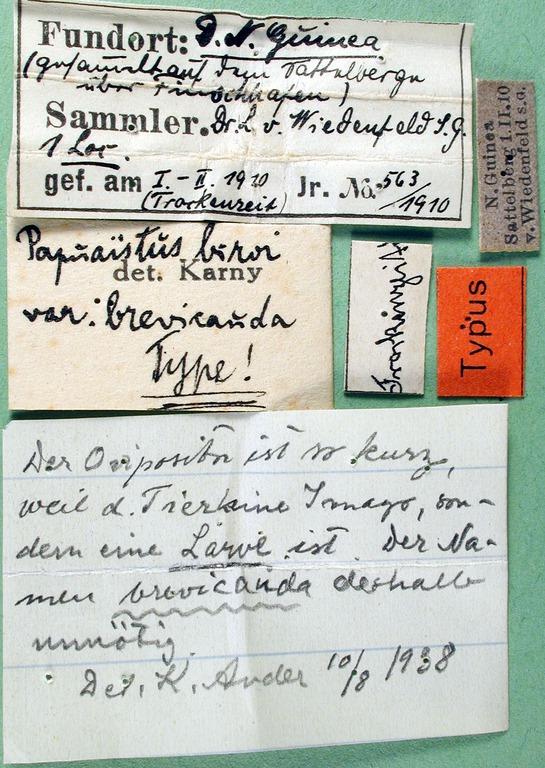 Fundort: D. N. Guinea
(gesammelt auf dem Sattelberge
über Finschhafen)
Sammler. Dr. L. v. Wiedenfeld S. G.
1 Loc.
gef. am I.-II. 1910 Jr. No. 563/1910
(Trockenzeit)
N. Guinea
Sattelberg I.II.10
v. Wiedenfeld s.G.
Papuaïstus biroi
det. Karny
var: brevicauda
Type!
Trockenzeit
Typus
Der Ovipositor ist so kurz,
weil d. Tier keine Imago, son-
dern eine Larve ist. Der Na-
men brevicauda deshalb
unnötig.
Det. K. Ander 10/8 1938